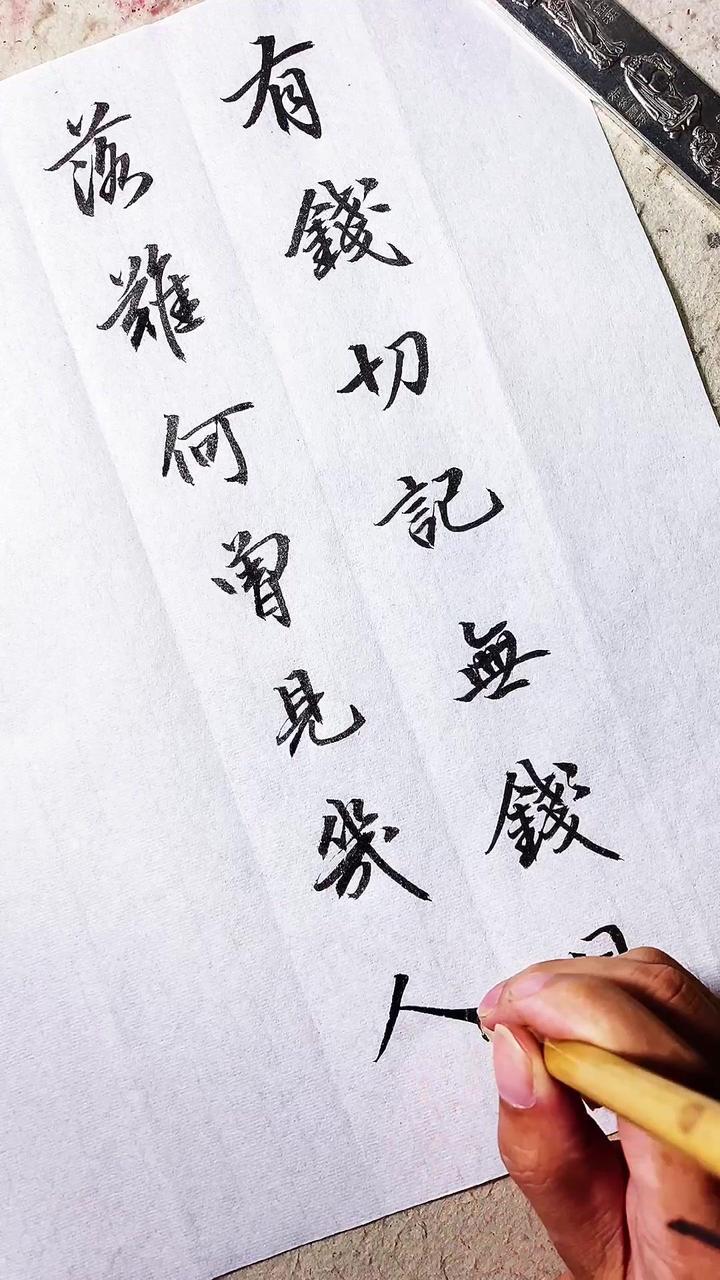 有錢切記無錢日
落難何曾見幾人